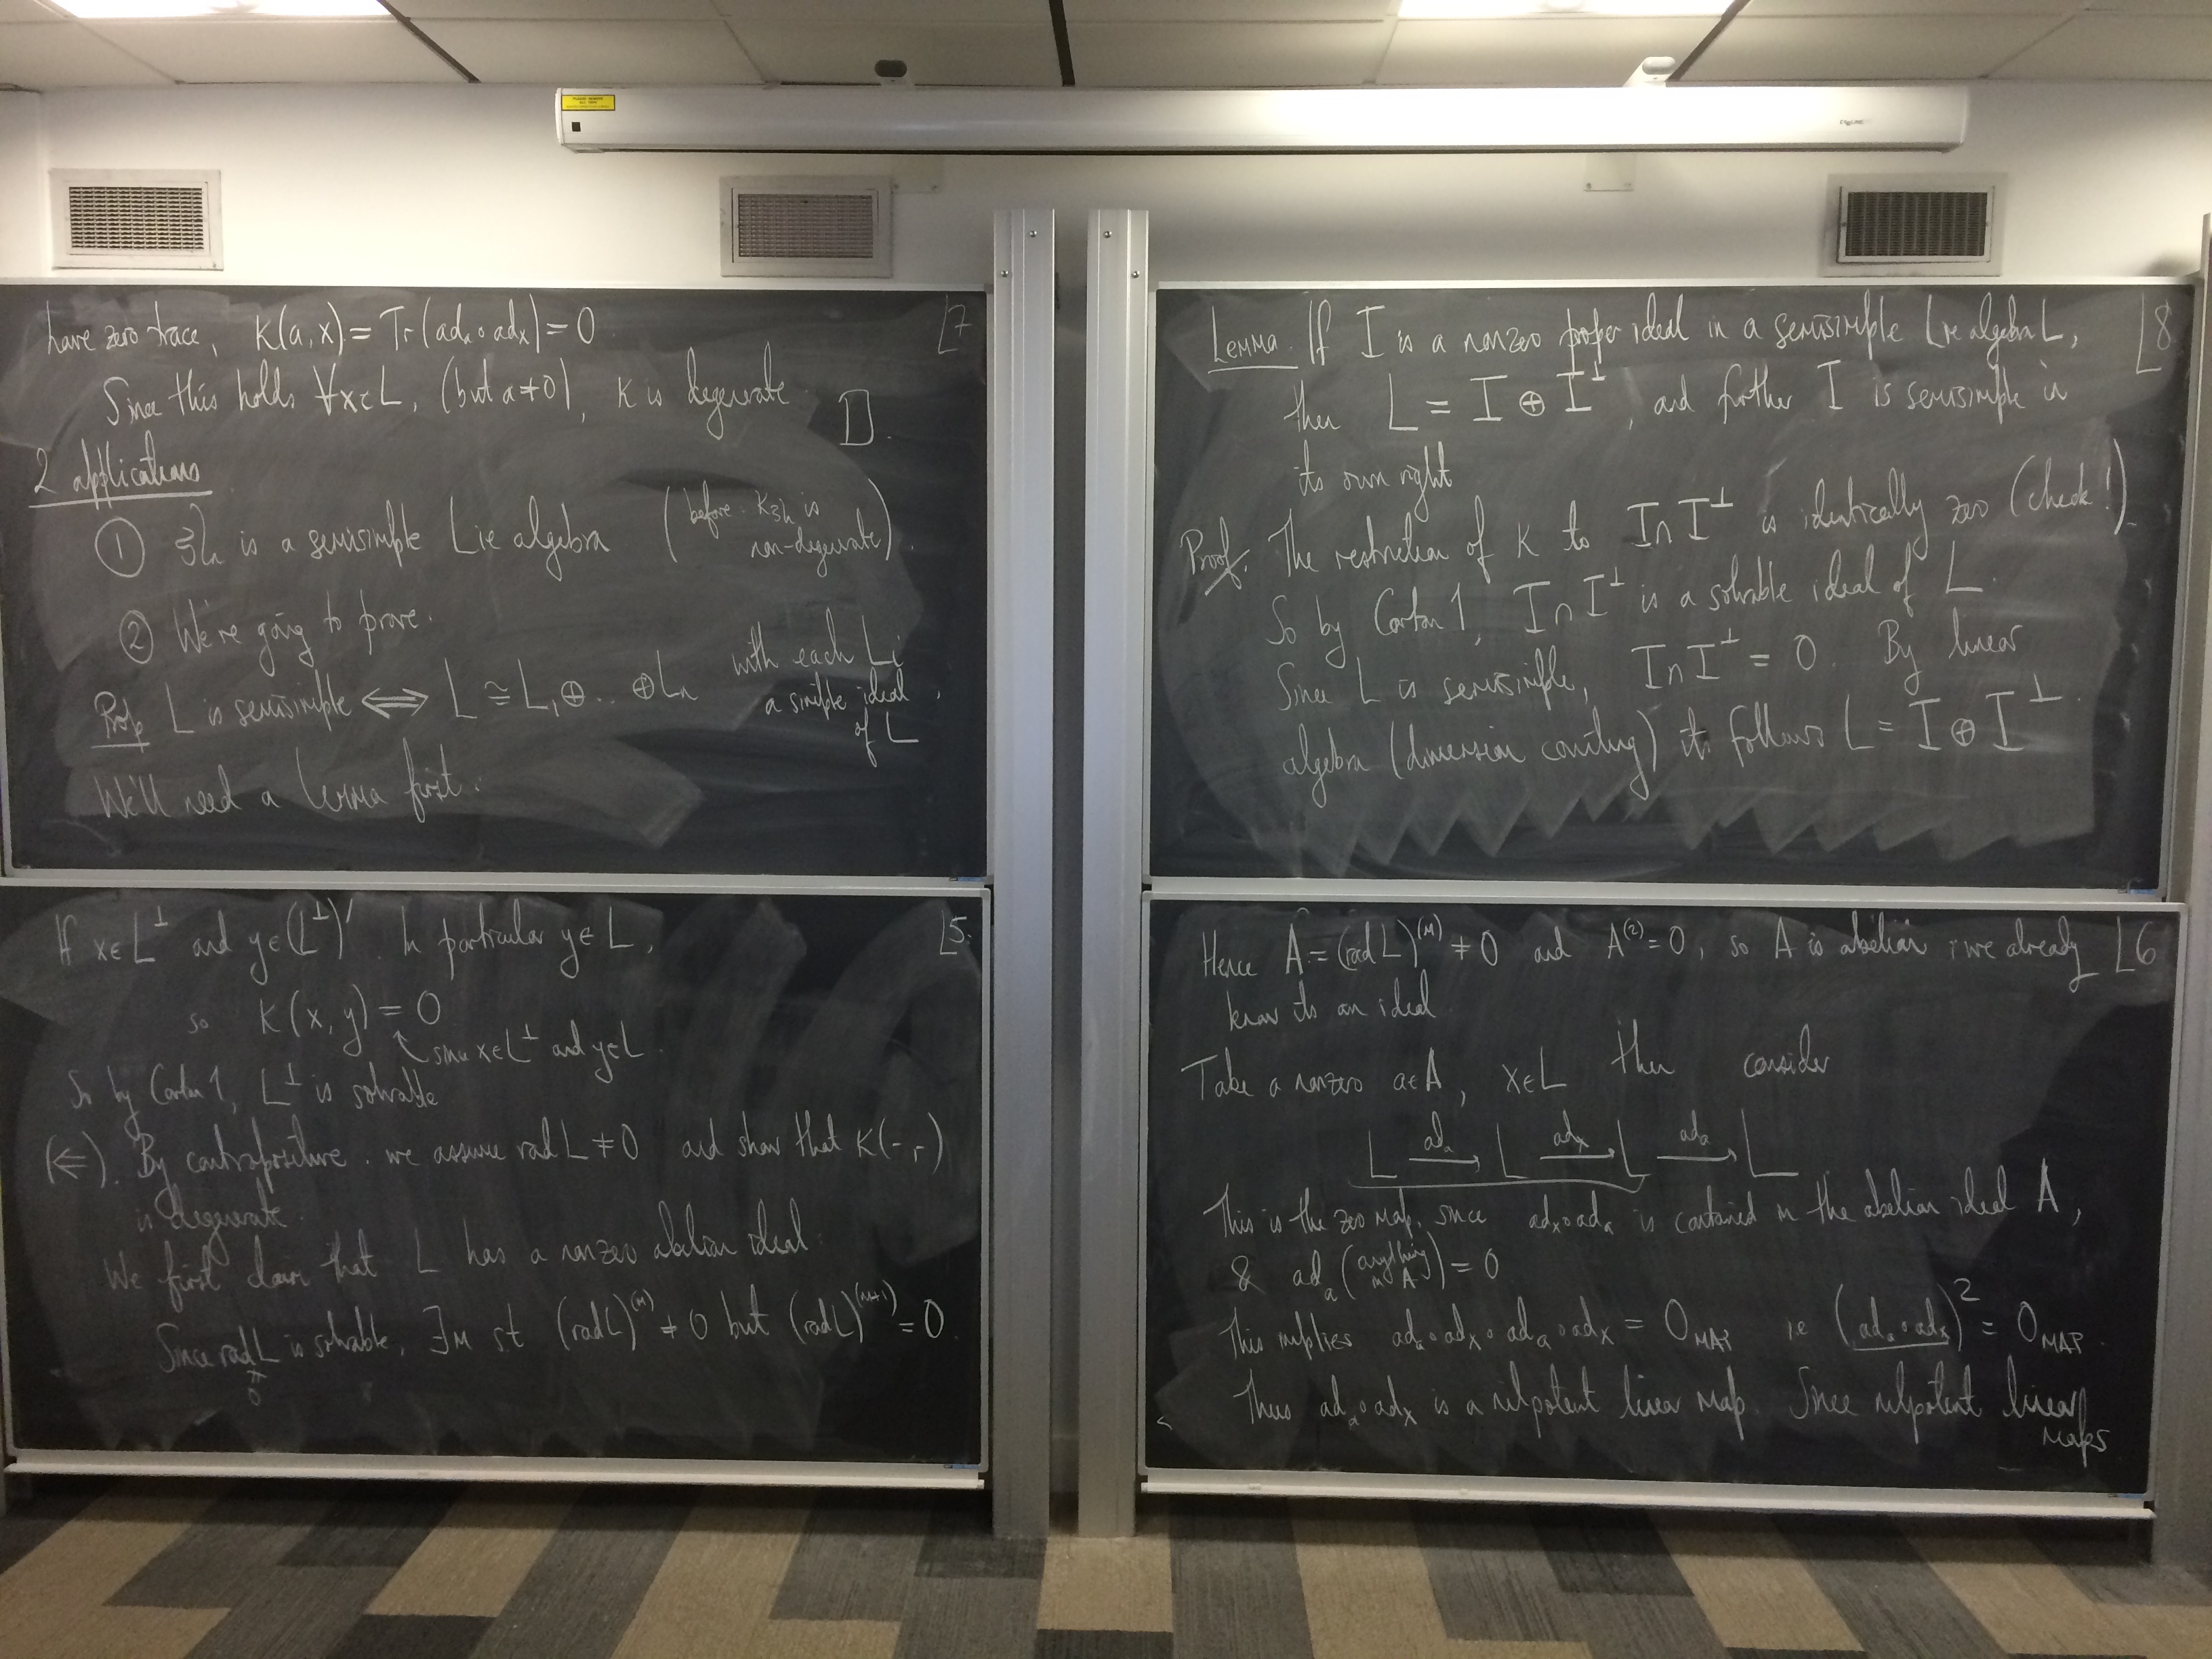 have zero trace, K(a,x) = Tr(ad_a ∘ ad_x) = 0
L7
Since this holds ∀x∈L, (but a≠0), K is degenerate. □.
2 applications
① is a semisimple Lie algebra (before: is non-degenerate).
② We're going to prove.
Prop L is semisimple ⟺ L ≅ L₁⊕ .. ⊕L_n with each L_i a simple ideal of L.
We'll need a lemma first:
Lemma. If I is a nonzero proper ideal in a semisimple Lie algebra L,
L8
then L = I ⊕ I^⊥, and further I is semisimple in
its own right
Proof. The restriction of K to I∩I^⊥ is identically zero (check!)
So by Cartan 1, I∩I^⊥ is a solvable ideal of L.
Since L is semisimple, I∩I^⊥ = 0. By linear
algebra (dimension counting) it follows L = I ⊕ I^⊥.
If x∈L^⊥ and y∈(L^⊥)'. In particular y∈L,
L5.
so K(x,y) = 0
since x∈L^⊥ and y∈L.
So by Cartan 1, L^⊥ is solvable
(⇐). By contrapositive. we assume rad L ≠ 0 and show that K(-,-)
is degenerate.
We first claim that L has a nonzero abelian ideal:
Since rad L is solvable, ∃m s.t (rad L)^(m) ≠ 0 but (rad L)^(m+1) = 0.
≠
0
Hence A := (rad L)^(m) ≠ 0 and A^(2) = 0, so A is abelian; we already
L6
know its an ideal.
Take a nonzero a∈A, x∈L then consider
L —ad_a→ L —ad_x→ L —ad_a→ L
This is the zero map, since ad_x∘ad_a is contained in the abelian ideal A,
& ad_a (anything in A) = 0
This implies ad_a∘ad_x∘ad_a∘ad_x = 0_MAP ie (ad_a∘ad_x)² = 0_MAP.
Thus ad_a∘ad_x is a nilpotent linear map. Since nilpotent linear
maps